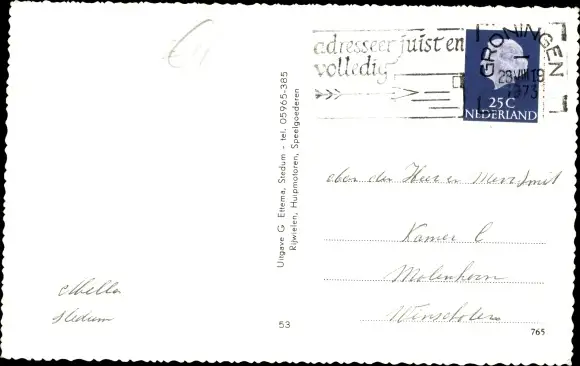 adresseer juist en
volledig
GRONINGEN
28 VIII 19
1973
25 C
NEDERLAND
Uitgave G. Ettema, Stedum - tel. 05965-385
Rijwielen, Hulpmotoren, Speelgoederen
den Heer en Mevr Smit
Kamer
Molenhorn
Winschoten
Stedum
53
765